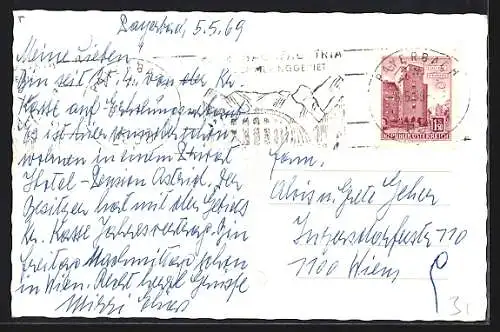 Payerbach, 5.5.69
Meine Lieben
Bin seit 28. 4. von der Kr.
Kasse auf Erholungsurlaub
Es ist hier wunderschön
wohnen in einem
Hotel-Pension Astrid, der
Besitzer hat mit der Gebiets
kr. Kasse Jahresverträge. Bin
Freitag Nachmittag schon
in Wien. Recht herzl. Grüsse
Mitzi
PAYERBACH
REPUBLIK ÖSTERREICH
Fam.
Alois u. Grete Geher
Inzersdorferstr 110
1100 Wien
31